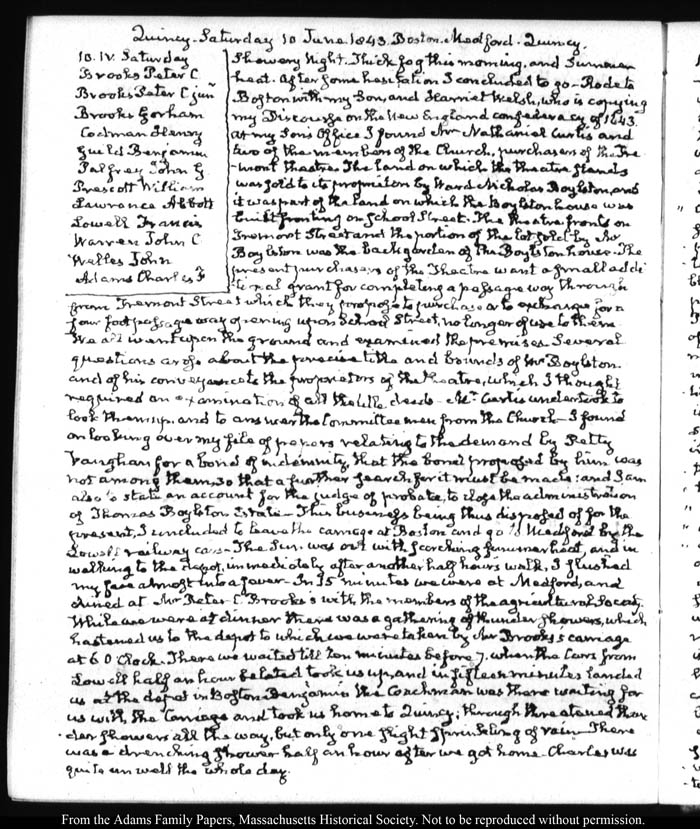 Quincy. Saturday 10 June 1843. Boston. Medford. Quincy.
10. IV. Saturday
Brooks Peter C
Brooks Peter C junr
Brooks Gorham
Codman Henry
Guild Benjamin
Palfrey John G
Prescott William
Lawrence Abbott
Lowell Francis
Warren John C
Welles John
Adams Charles F
Showery Night. Thick fog this morning, and Summer
heat. After some hesitation I concluded to go. Rode to
Boston with my Son, and Harriet Welsh, who is copying
my Discourse on the New England confederacy of 1643.
at my Son's Office I found Mr Nathaniel Curtis and
two of the members of the Church, purchasers of the Tre-
-mont theatre. The land on which the theatre stands
was sold to its proprietors by Ward Nicholas Boylston, and
it was part of the land on which the Boylston house was
built fronting on School Street. The theatre fronts on
Tremont Street and the portion of the lot sold by Mr
Boylston was the back garden of the Boylston house. The
present purchasers of the Theatre want a small addi-
-tional grant for completing a passage way through
from Tremont Street which they propose to purchase or to exchange for a
four foot passage way opening upon School Street, no longer of use to them
We all went upon the ground and examined the premises. Several
questions arose about the precise title and bounds of Mr Boylston.
and of his conveyance to the proprietors of the theatre, which I thought
required an examination of all the title deeds. Mr Curtis undertook to
look them up, and to answer the Committee men from the Church. I found
on looking over my file of papers relating to the demand by Petty
Vaughan for a bond of indemnity, that the bond proposed by him was
not among them, so that a further search for it must be made; and I am
also to state an account for the judge of probate, to close the administration
of Thomas Boylston Estate. This business being thus disposed of for the
present, I concluded to leave the carriage at Boston and go to Medford by the
Lowell railway cars. The Sun was out with scorching summer heat, and in
walking to the depot, immediately after another half hour's walk, I flushed
my face almost into a fever. In 15 minutes we were at Medford, and
dined at Mr Peter C. Brooks's with the members of the agricultural Society.
While we were at dinner there was a gathering of thunder showers, which
hastened us to the depot to which we were taken by Mr Brooks's carriage
at 6 O'Clock. There we waited till ten minutes before 7. when the Cars from
Lowell half an hour belated took us up, and in fifteen minutes landed
us at the depot in Boston. Benjamin the Coachman was there waiting for
us with the Carriage and took us home to Quincy; through threatened thun-
der showers all the way, but only one slight sprinkling of rain. There
was a drenching shower half an hour after we got home. Charles was
quite unwell the whole day.
From the Adams Family Papers, Massachusetts Historical Society. Not to be reproduced without permission.